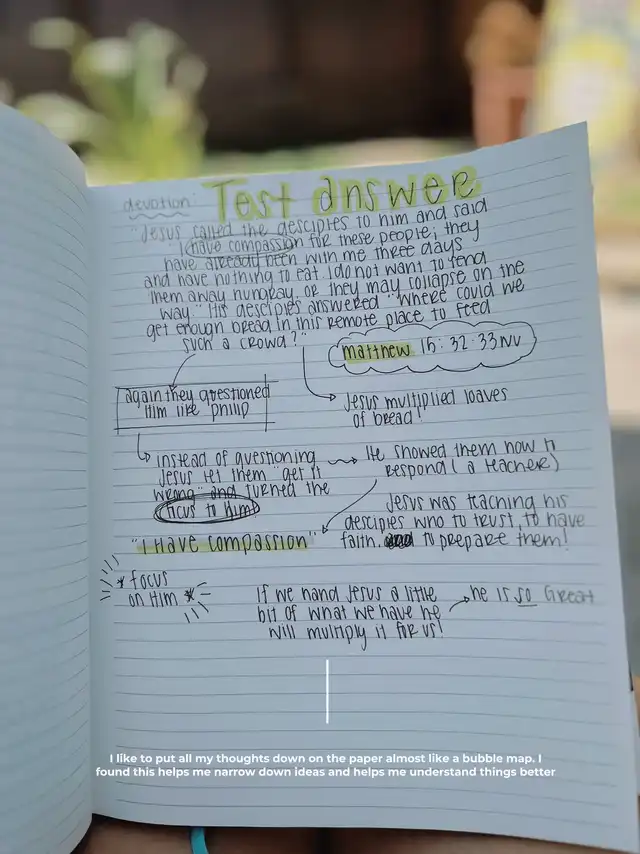 devotion: Test answer
"Jesus called the desciples to him and said
"I have compassion for these people; they
have already been with me three days
and have nothing to eat. I do not want to send
them away hungray, or they may collapse on the
way." His desciples answered "Where could we
get enough bread in this remote place to feed
such a crowd?"
matthew 15:32-33 NIV
again they questioned
Him like Philip
Jesus multiplied loaves
of bread!
instead of questioning
Jesus let them "get it
wrong" and turned the
focus to him!
He showed them how to
respond (a teacher)
Jesus was teaching his
desciples who to trust, to have
faith. to prepare them!
"I have compassion"
* focus
on Him *
If we hand Jesus a little
bit of what we have he
will multiply it for us!
he is so Great
I like to put all my thoughts down on the paper almost like a bubble map. I
found this helps me narrow down ideas and helps me understand things better